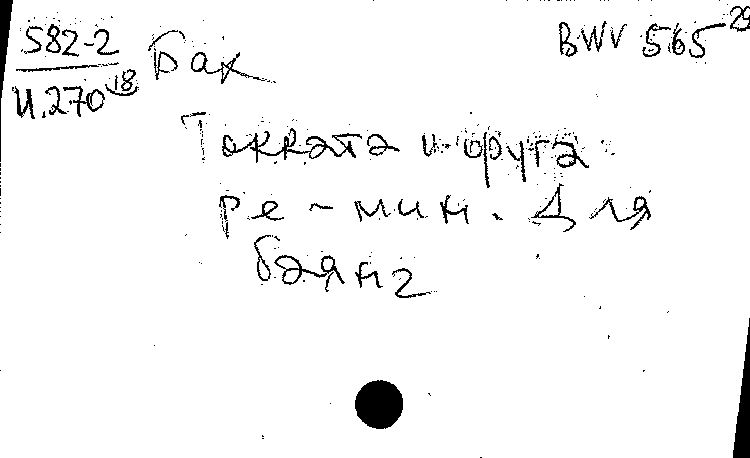 582-2 BWV 565 29
И.270 18 Бах
Токката и фуга
ре-мин. Для
баяна